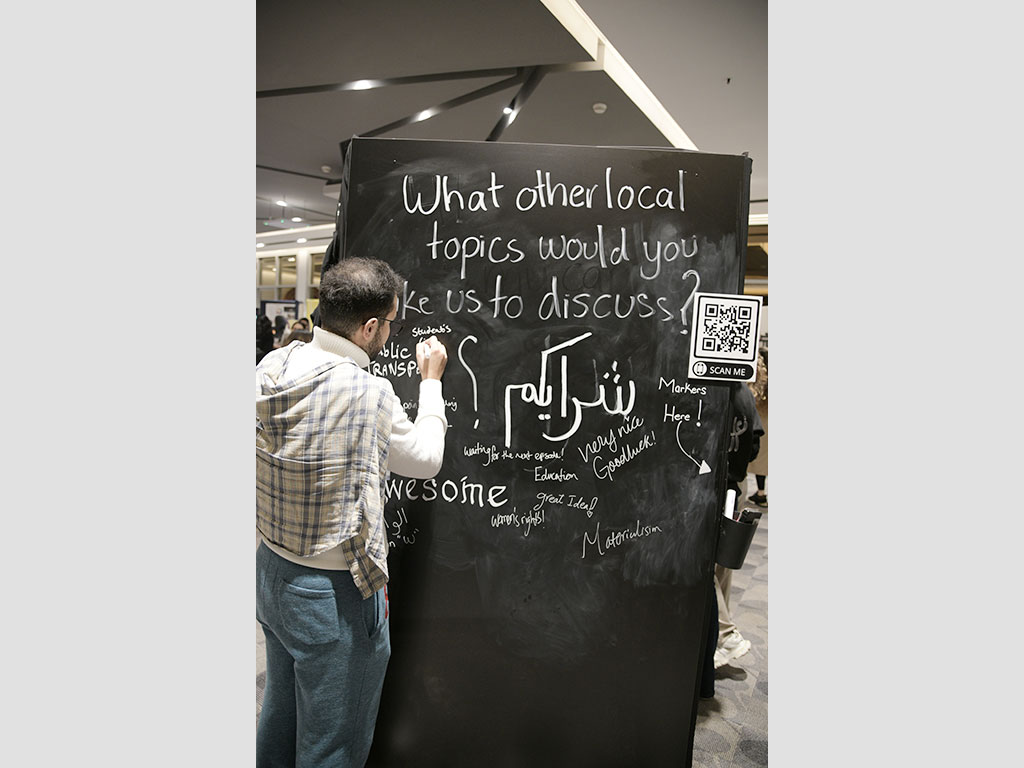 What other local
topics would you
ke us to discuss?
SCAN ME
Students
شرايكم؟
Markers
Here!
very nice
Goodluck!
waiting for the next episode!
Education
wesome
great Idea!
women's rights!
Materialism